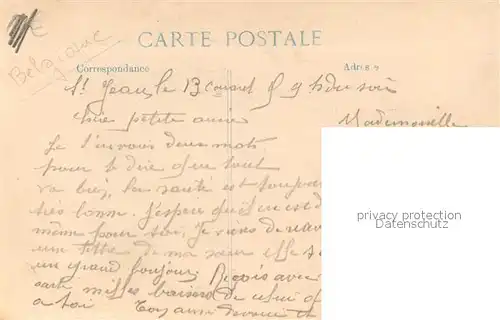 Belgique
CARTE POSTALE
Correspondance
Adresse
St Jean, le 13 courant 9 h du soir
Chère petite amie
Mademoiselle
Je t'envois deux mots
pour te dire que tout
va bien, la santé est toujours
très bonne. J'espère qu'il en est de
même pour toi. Je viens de
une lettre de ma sœur elle te
un grand bonjour. Reçois avec
carte milles baisers de celui
a toi Ton ami
privacy protection
Datenschutz